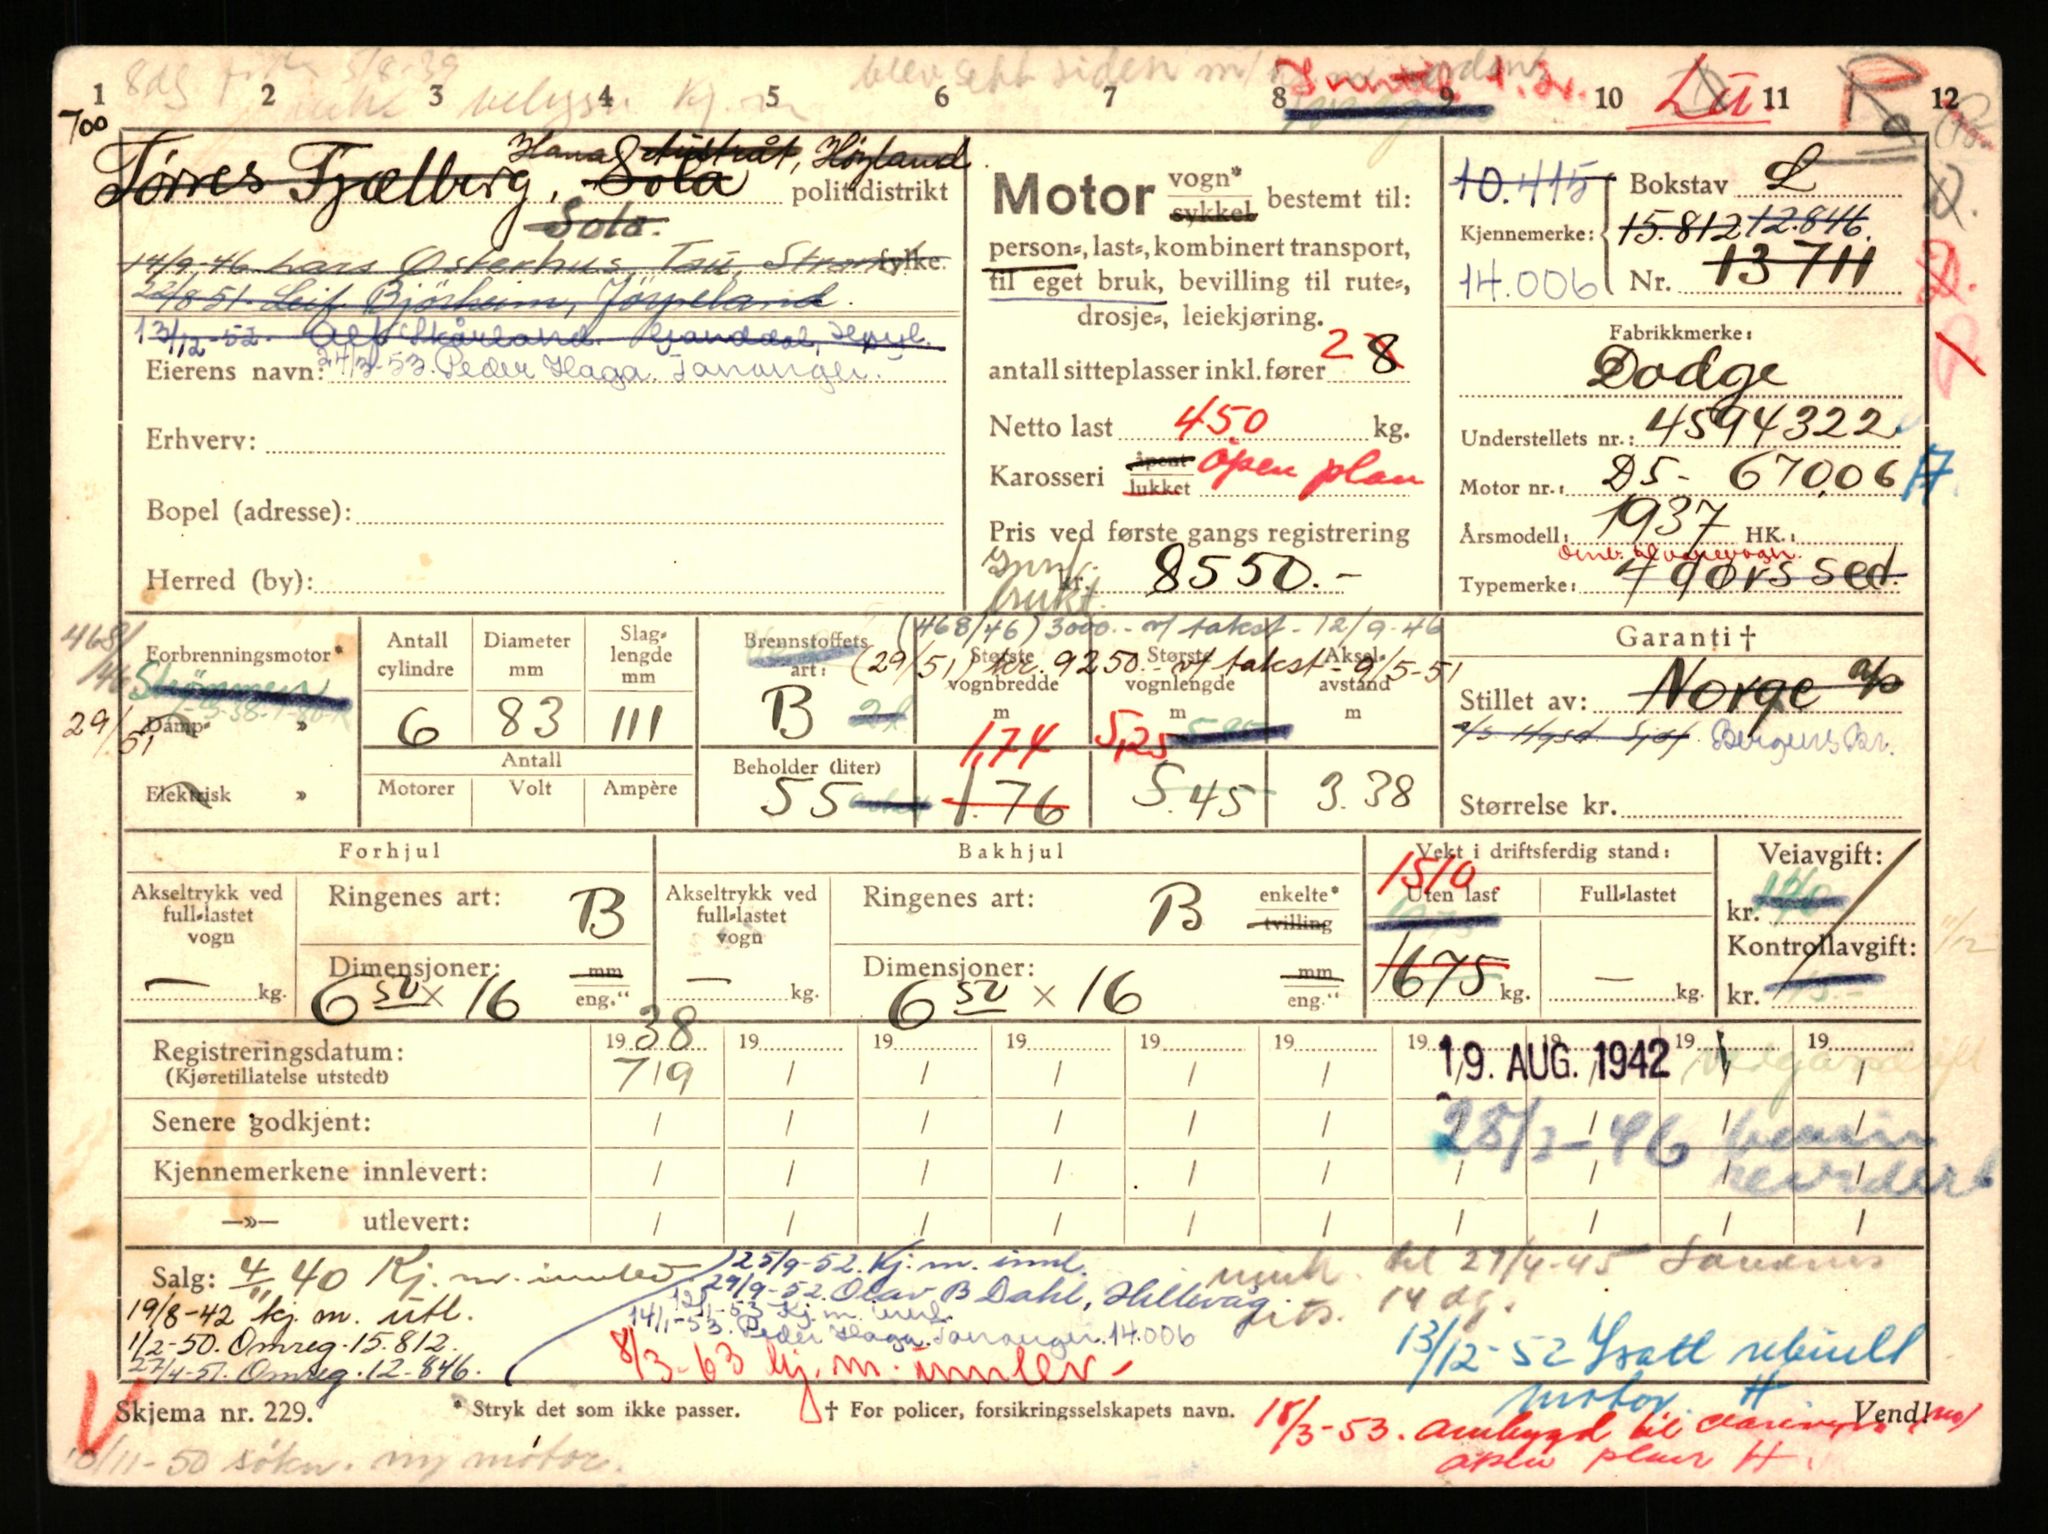 8 dg 5/8-39 blev sett siden m/
1 2 3 4 5 6 7 8 9 10 11 12
700
Tørres Fjælberg, Sola politidistrikt
Hana Austråt, Høyland
Sola.
14/9-46 Lars Østerhus, Tau, Strand fylke
22/8 51. Leif Bjørheim, Jørpeland.
13/12-52. Alf Skårland. Ganddal, Høyl.
Eierens navn: 24/3-53. Peder Haga. Tananger.
Erhverv:
Bopel (adresse):
Herred (by):
Motor vogn* sykkel bestemt til:
person-, last-, kombinert transport,
til eget bruk, bevilling til rute-,
drosje-, leiekjøring.
antall sitteplasser inkl. fører 8 2
Netto last 450 kg.
Karosseri åpent lukket åpen plan
Pris ved første gangs registrering
kr. 8550.-
brukt.
10.415 Bokstav L
Kjennemerke: 15.812 12.846.
14.006 Nr. 13711
Fabrikkmerke:
Dodge
Understellets nr.: 4594322
Motor nr.: D5- 67006
Årsmodell: 1937 HK.:
omb. til varevogn.
Typemerke: 4 dørs sed.
(468/46) 3000.- m/ takst - 12/9-46
(29/51) kr. 9250.- m/ takst - 9/5-51
468/46
29/51
Forbrenningsmotor*
Strømmen
Damp- »
Elektrisk »
Antall cylindre 6
Diameter mm 83
Slaglengde mm 111
Antall
Motorer Volt Ampère
Brennstoffets art: B
Beholder (liter) 55
Største vognbredde m 1,74 1.76
Største vognlengde m 5,25 5.45
Akselavstand m 3.38
Garanti †
Stillet av: Norge a/s
Bergens Br.
Størrelse kr.
Forhjul
Akseltrykk ved full-lastet vogn — kg.
Ringenes art: B
Dimensjoner: 6 50 × 16 mm eng."
Bakhjul
Akseltrykk ved full-lastet vogn — kg.
Ringenes art: B enkelte* tvilling
Dimensjoner: 6 50 × 16 mm eng."
Vekt i driftsferdig stand:
Uten last 1510 1675 kg.
Full-lastet — kg.
Veiavgift:
kr.
Kontrollavgift:
kr.
11/12
Registreringsdatum: 19 38 19 19 19 19 19 19 19 19
(Kjøretillatelse utstedt) 7/9 19. AUG. 1942
Senere godkjent: 25/3-46 bensin
Kjennemerkene innlevert: revidert
—»— utlevert:
Salg: 4/11 40 Kj. m. innlev
19/8-42 kj. m. utl.
1/2-50. Omreg. 15.812.
27/4-51. Omreg. 12-846.
25/9-52. Kj. m. innl.
29/9-52. Olav B Dahl, Hillevåg.
12/1-53 Kj. m. innl.
14/1-53. Peder Haga. Tananger. 14.006
8/3-63 kj. m. innlev.
til 29/4-45 Sandnes
14 dg.
13/12-52 Isatt rebuilt
motor. H
Skjema nr. 229. * Stryk det som ikke passer. † For policer, forsikringsselskapets navn. Vend!
18/3-53. ombygd til varevogn m/
åpen plan H.
10/11-50 søkn. ny motor.